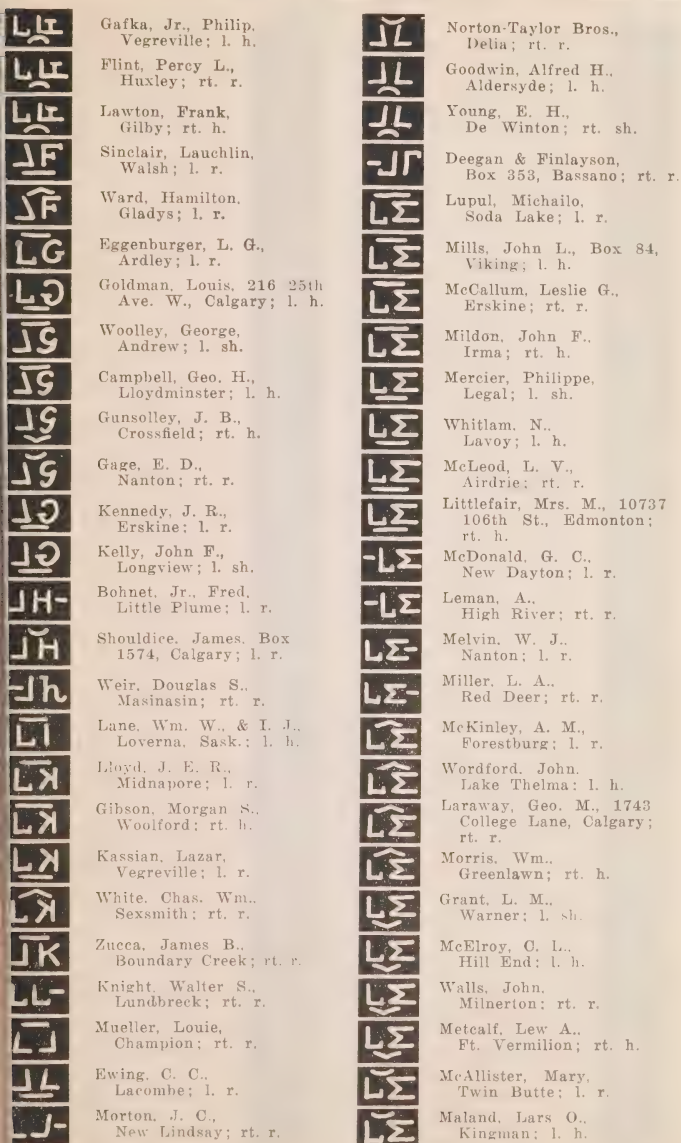 Gafka, Jr., Philip,
Vegreville; l. h.
Flint, Percy L.,
Huxley; rt. r.
Lawton, Frank,
Gilby; rt. h.
Sinclair, Lauchlin,
Walsh; l. r.
Ward, Hamilton,
Gladys; l. r.
Eggenburger, L. G.,
Ardley; l. r.
Goldman, Louis, 216 25th
Ave. W., Calgary; l. h.
Woolley, George,
Andrew; l. sh.
Campbell, Geo. H.,
Lloydminster; l. h.
Gunsolley, J. B.,
Crossfield; rt. h.
Gage, E. D.,
Nanton; rt. r.
Kennedy, J. R.,
Erskine; l. r.
Kelly, John F.,
Longview; l. sh.
Bohnet, Jr., Fred,
Little Plume; l. r.
Shouldice, James, Box
1574, Calgary; l. r.
Weir, Douglas S.,
Masinasin; rt. r.
Lane, Wm. W., & I. J.,
Loverna, Sask.; l. h.
Lloyd, J. E. R.,
Midnapore; l. r.
Gibson, Morgan S.,
Woolford; rt. h.
Kassian, Lazar,
Vegreville; l. r.
White, Chas. Wm.,
Sexsmith; rt. r.
Zucca, James B.,
Boundary Creek; rt. r.
Knight, Walter S.,
Lundbreck; rt. r.
Mueller, Louie,
Champion; rt. r.
Ewing, C. C.,
Lacombe; l. r.
Morton, J. C.,
New Lindsay; rt. r.
Norton-Taylor Bros.,
Delia; rt. r.
Goodwin, Alfred H.,
Aldersyde; l. h.
Young, E. H.,
De Winton; rt. sh.
Deegan & Finlayson,
Box 353, Bassano; rt. r.
Lupul, Michailo,
Soda Lake; l. r.
Mills, John L., Box 84,
Viking; l. h.
McCallum, Leslie G.,
Erskine; rt. r.
Mildon, John F.,
Irma; rt. h.
Mercier, Philippe,
Legal; l. sh.
Whitlam, N.,
Lavoy; l. h.
McLeod, L. V.,
Airdrie; rt. r.
Littlefair, Mrs. M., 10737
106th St., Edmonton;
rt. h.
McDonald, G. C.,
New Dayton; l. r.
Leman, A.,
High River; rt. r.
Melvin, W. J.,
Nanton; l. r.
Miller, L. A.,
Red Deer; rt. r.
McKinley, A. M.,
Forestburg; l. r.
Wordford, John,
Lake Thelma; l. h.
Laraway, Geo. M., 1743
College Lane, Calgary;
rt. r.
Morris, Wm.,
Greenlawn; rt. h.
Grant, L. M.,
Warner; l. sh.
McElroy, C. L.,
Hill End; l. h.
Walls, John,
Milnerton; rt. r.
Metcalf, Lew A.,
Ft. Vermilion; rt. h.
McAllister, Mary,
Twin Butte; l. r.
Maland, Lars O.,
Kingman; l. h.